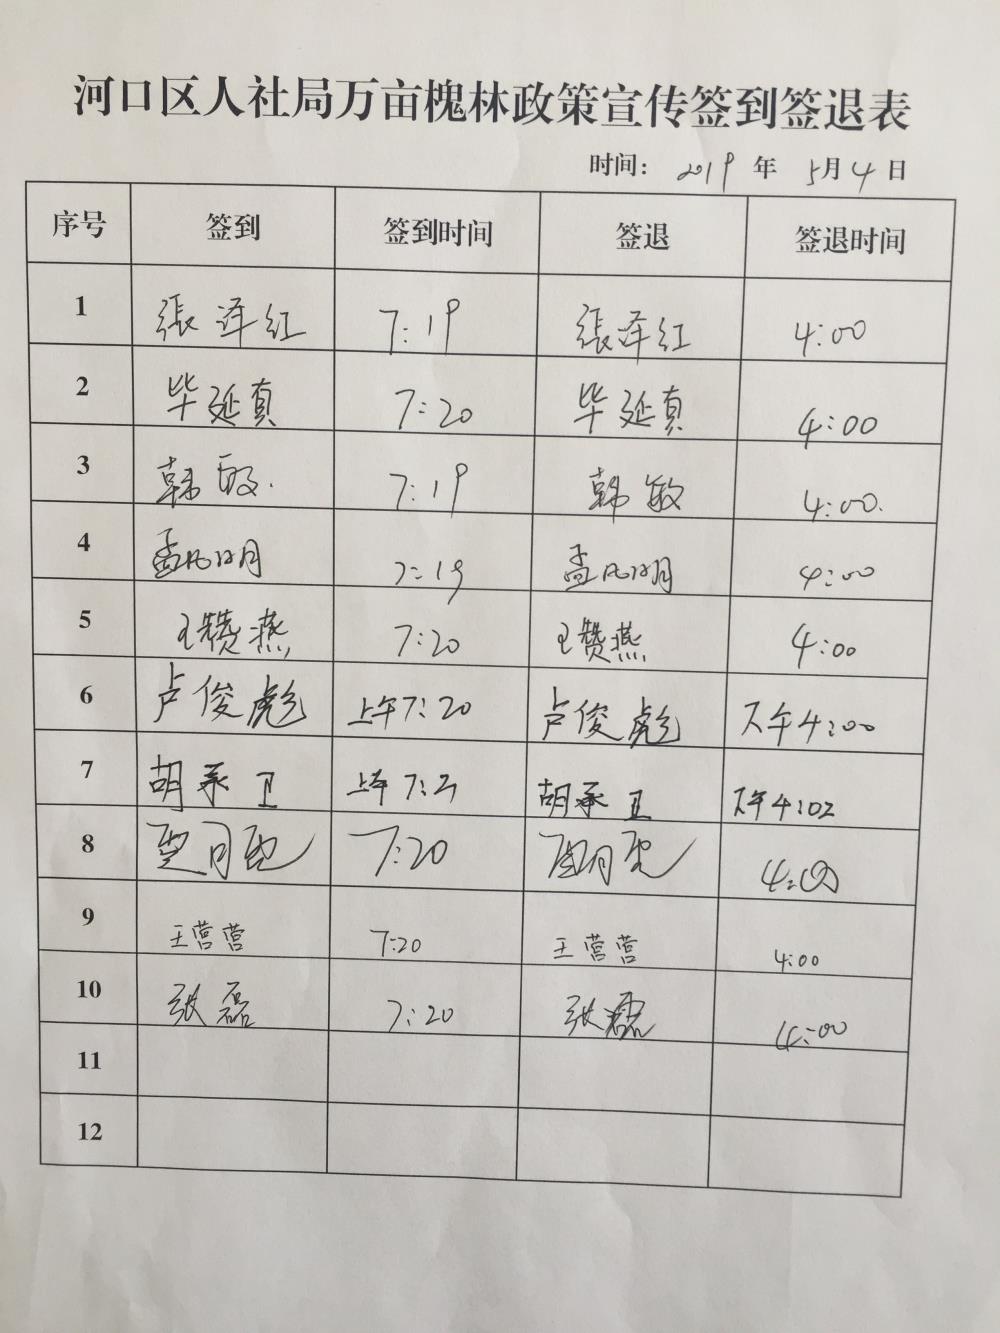 河口区人社局万亩槐林政策宣传签到签退表
时间: 2019 年 5月4日
序号 签到 签到时间 签退 签退时间
1 張泽红 7:19 張泽红 4:00
2 毕延真 7:20 毕延真 4:00
3 韩敏. 7:19 韩敏 4:00.
4 孟凡明 7:19 孟凡明 4:00
5 王赞燕 7:20 王赞燕 4:00
6 卢俊彪 上午7:20 卢俊彪 下午4:00
7 胡承卫 上午 胡承卫 下午4:02
8 7:20 4:00
9 王营营 7:20 王营营 4:00
10 张磊 7:20 张磊 4:00
11
12